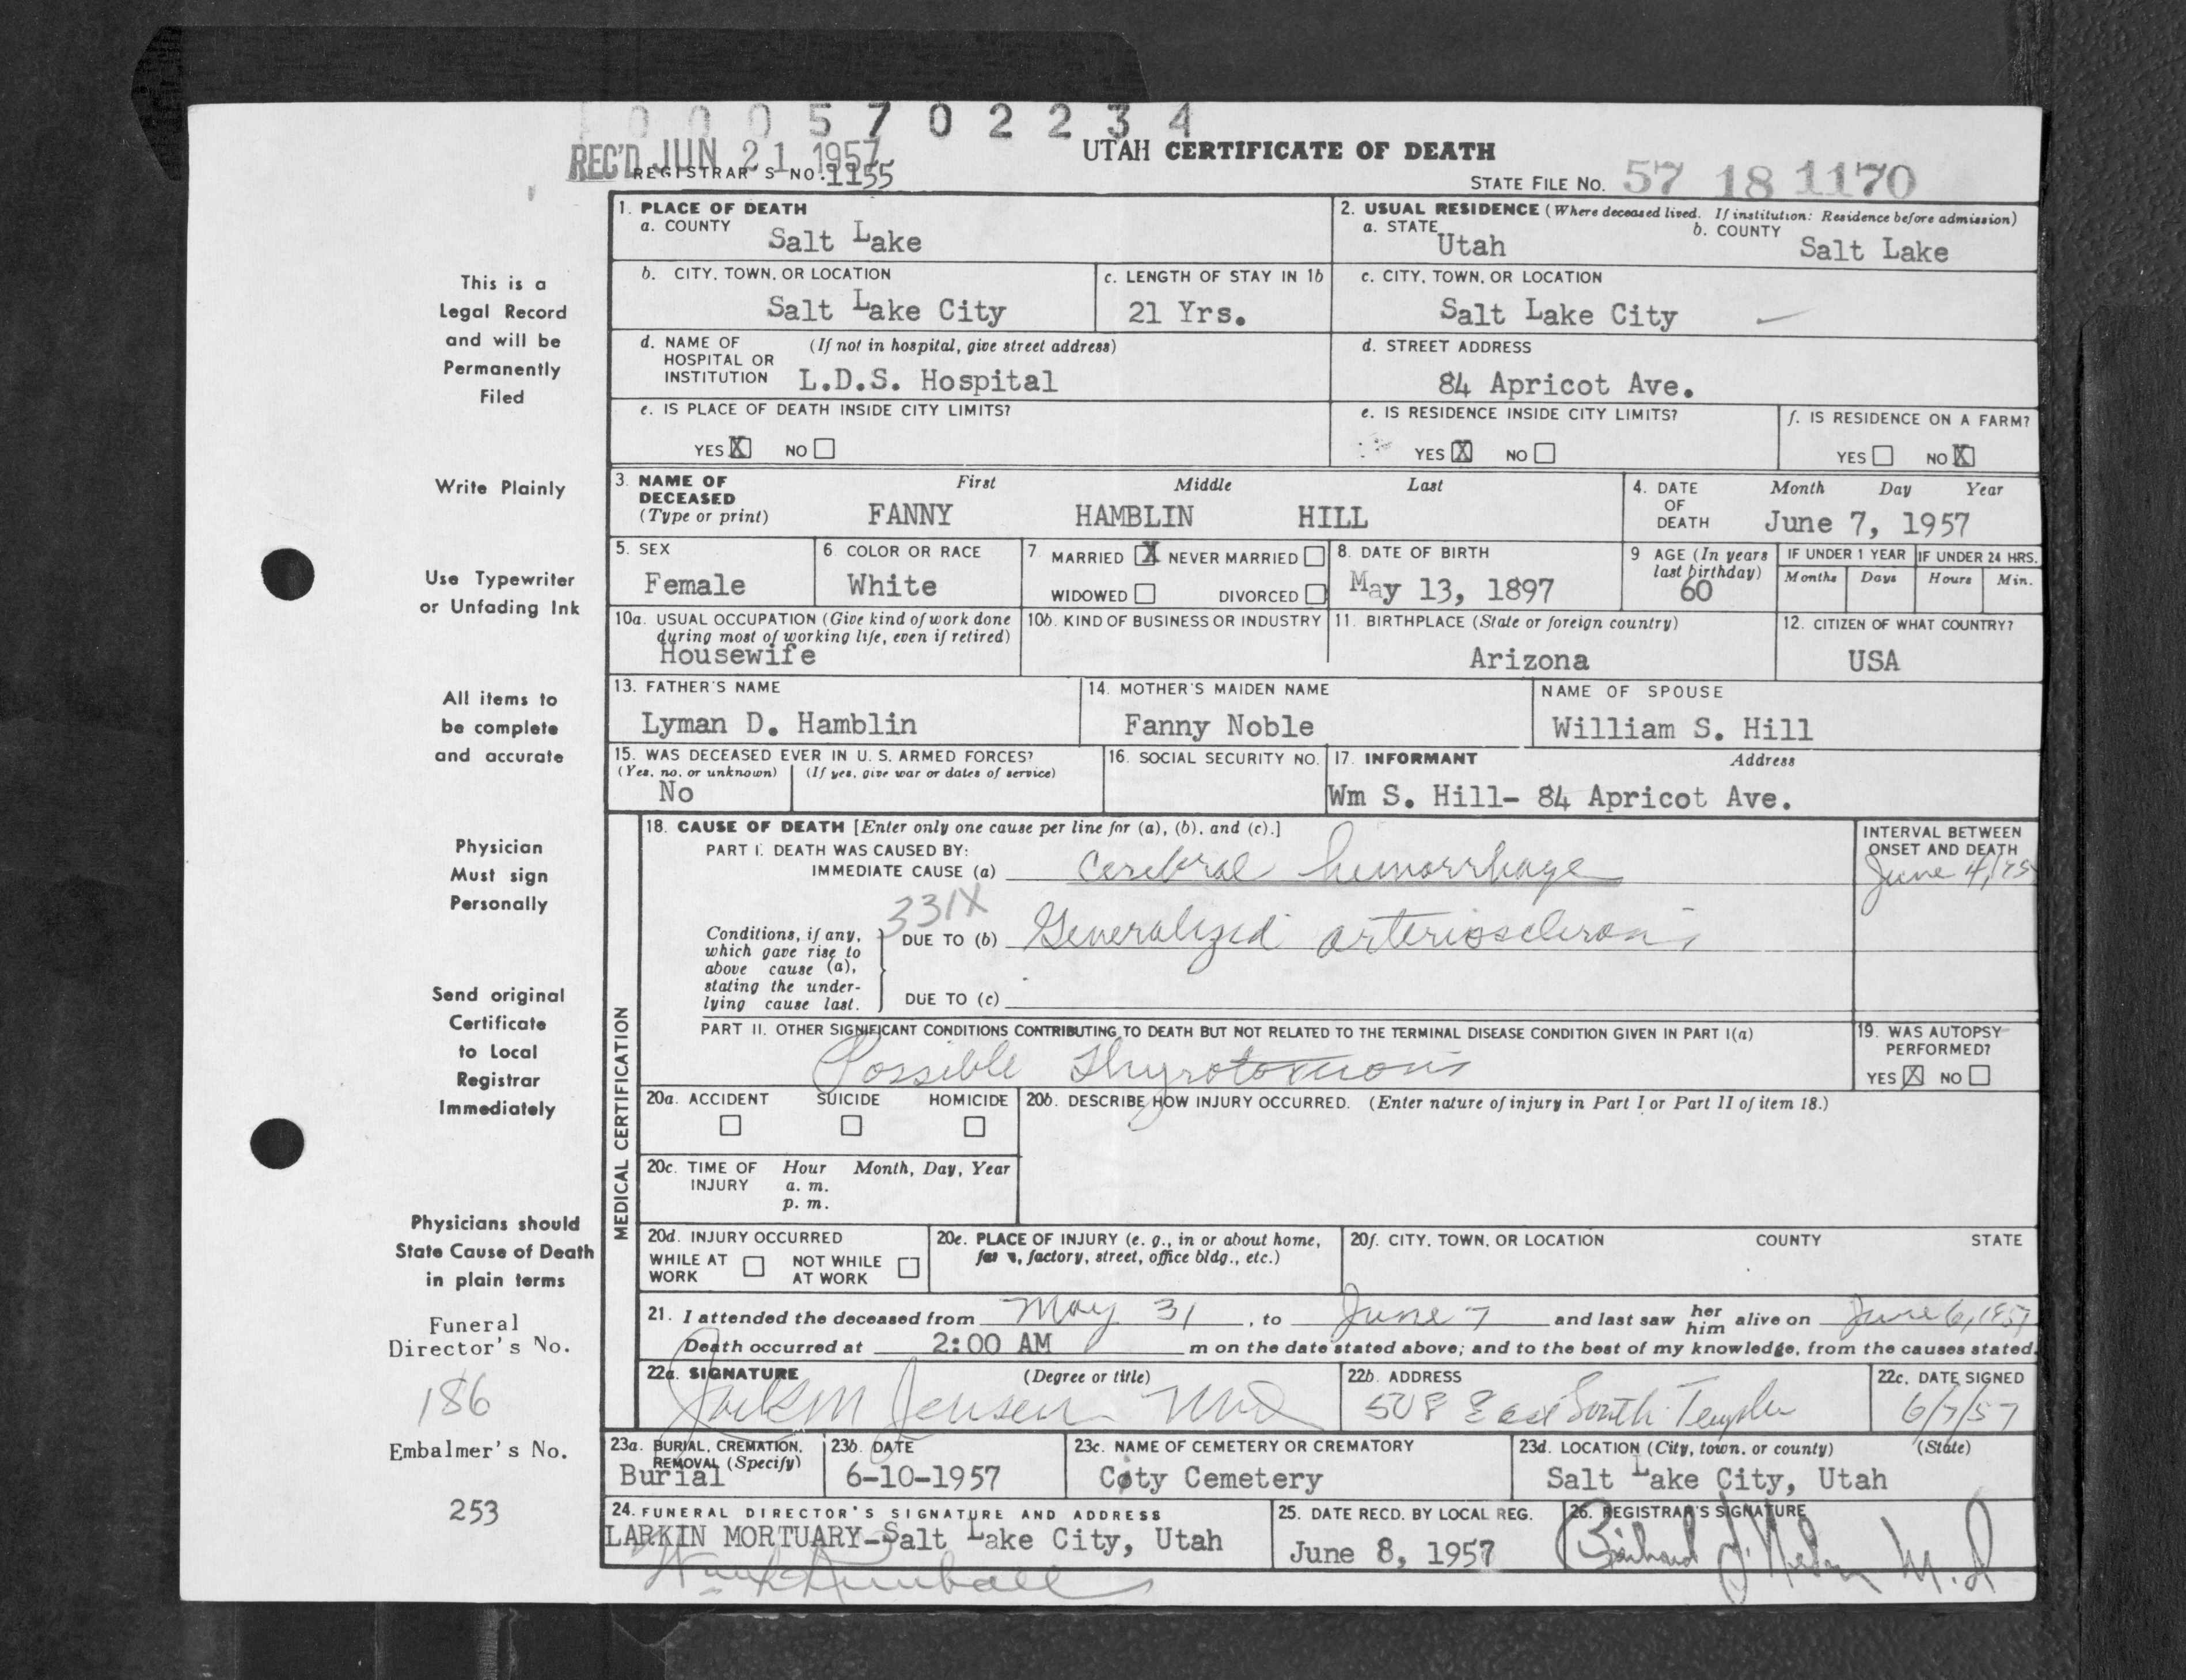 0005702234
REC'D JUN 21 1957
REGISTRAR'S NO. 1155
UTAH CERTIFICATE OF DEATH
STATE FILE NO. 57 18 1170
This is a
Legal Record
and will be
Permanently
Filed
Write Plainly
Use Typewriter
or Unfading Ink
All items to
be complete
and accurate
Physician
Must sign
Personally
Send original
Certificate
to Local
Registrar
Immediately
Physicians should
State Cause of Death
in plain terms
Funeral
Director's No.
186
Embalmer's No.
253
1. PLACE OF DEATH
a. COUNTY Salt Lake
2. USUAL RESIDENCE (Where deceased lived. If institution: Residence before admission)
a. STATE Utah b. COUNTY Salt Lake
b. CITY, TOWN, OR LOCATION Salt Lake City
c. LENGTH OF STAY IN 1b 21 Yrs.
c. CITY, TOWN, OR LOCATION Salt Lake City
d. NAME OF HOSPITAL OR INSTITUTION (If not in hospital, give street address) L.D.S. Hospital
d. STREET ADDRESS 84 Apricot Ave.
e. IS PLACE OF DEATH INSIDE CITY LIMITS?
YES X NO
e. IS RESIDENCE INSIDE CITY LIMITS?
YES X NO
f. IS RESIDENCE ON A FARM?
YES NO X
3. NAME OF DECEASED (Type or print) First Middle Last
FANNY HAMBLIN HILL
4. DATE OF DEATH Month Day Year
June 7, 1957
5. SEX Female
6. COLOR OR RACE White
7. MARRIED X NEVER MARRIED
WIDOWED DIVORCED
8. DATE OF BIRTH May 13, 1897
9 AGE (In years last birthday) 60
IF UNDER 1 YEAR Months Days
IF UNDER 24 HRS. Hours Min.
10a. USUAL OCCUPATION (Give kind of work done during most of working life, even if retired)
Housewife
10b. KIND OF BUSINESS OR INDUSTRY
11. BIRTHPLACE (State or foreign country)
Arizona
12. CITIZEN OF WHAT COUNTRY?
USA
13. FATHER'S NAME
Lyman D. Hamblin
14. MOTHER'S MAIDEN NAME
Fanny Noble
NAME OF SPOUSE
William S. Hill
15. WAS DECEASED EVER IN U. S. ARMED FORCES?
(Yes, no, or unknown) (If yes, give war or dates of service)
No
16. SOCIAL SECURITY NO.
17. INFORMANT Address
Wm S. Hill- 84 Apricot Ave.
MEDICAL CERTIFICATION
18. CAUSE OF DEATH [Enter only one cause per line for (a), (b), and (c).]
PART I. DEATH WAS CAUSED BY:
IMMEDIATE CAUSE (a) Cerebral hemorrhage
INTERVAL BETWEEN ONSET AND DEATH
June 4,
331X
Conditions, if any, which gave rise to above cause (a), stating the under-lying cause last.
DUE TO (b) Generalized arteriosclerosis
DUE TO (c)
PART II. OTHER SIGNIFICANT CONDITIONS CONTRIBUTING TO DEATH BUT NOT RELATED TO THE TERMINAL DISEASE CONDITION GIVEN IN PART I(a)
Possible Thyrotoxicosis
19. WAS AUTOPSY PERFORMED?
YES X NO
20a. ACCIDENT SUICIDE HOMICIDE
20b. DESCRIBE HOW INJURY OCCURRED. (Enter nature of injury in Part I or Part II of item 18.)
20c. TIME OF INJURY Hour Month, Day, Year
a. m.
p. m.
20d. INJURY OCCURRED
WHILE AT WORK NOT WHILE AT WORK
20e. PLACE OF INJURY (e. g., in or about home, farm, factory, street, office bldg., etc.)
20f. CITY, TOWN, OR LOCATION COUNTY STATE
21. I attended the deceased from May 31, to June 7 and last saw her him alive on June 6, 1957
Death occurred at 2:00 AM m on the date stated above; and to the best of my knowledge, from the causes stated.
22a. SIGNATURE (Degree or title)
Jack M Jensen MD
22b. ADDRESS
508 East South Temple
22c. DATE SIGNED
6/7/57
23a. BURIAL, CREMATION, REMOVAL (Specify)
Burial
23b. DATE
6-10-1957
23c. NAME OF CEMETERY OR CREMATORY
City Cemetery
23d. LOCATION (City, town, or county) (State)
Salt Lake City, Utah
24. FUNERAL DIRECTOR'S SIGNATURE AND ADDRESS
LARKIN MORTUARY-Salt Lake City, Utah
25. DATE RECD. BY LOCAL REG.
June 8, 1957
26. REGISTRAR'S SIGNATURE
M.D